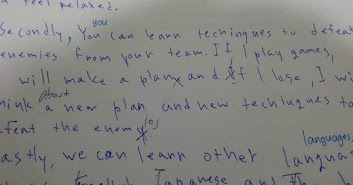 feel relaxed.
you
Secondly, You can learn techingues to defeat
enemies from your team. If I play games,
will make a plan and if I lose, I wi
about
hink a new plan and new techingues to
feat the enemy
es
languages
astly, we can learn other langua
English Japanese and